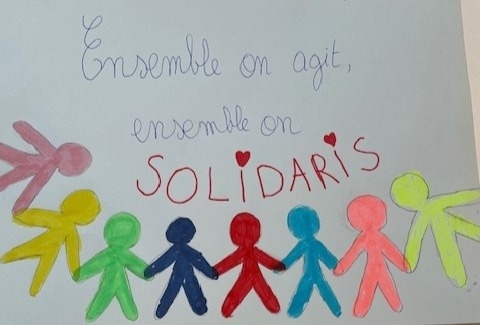 Ensemble on agit,
ensemble on
SOLiDARiS